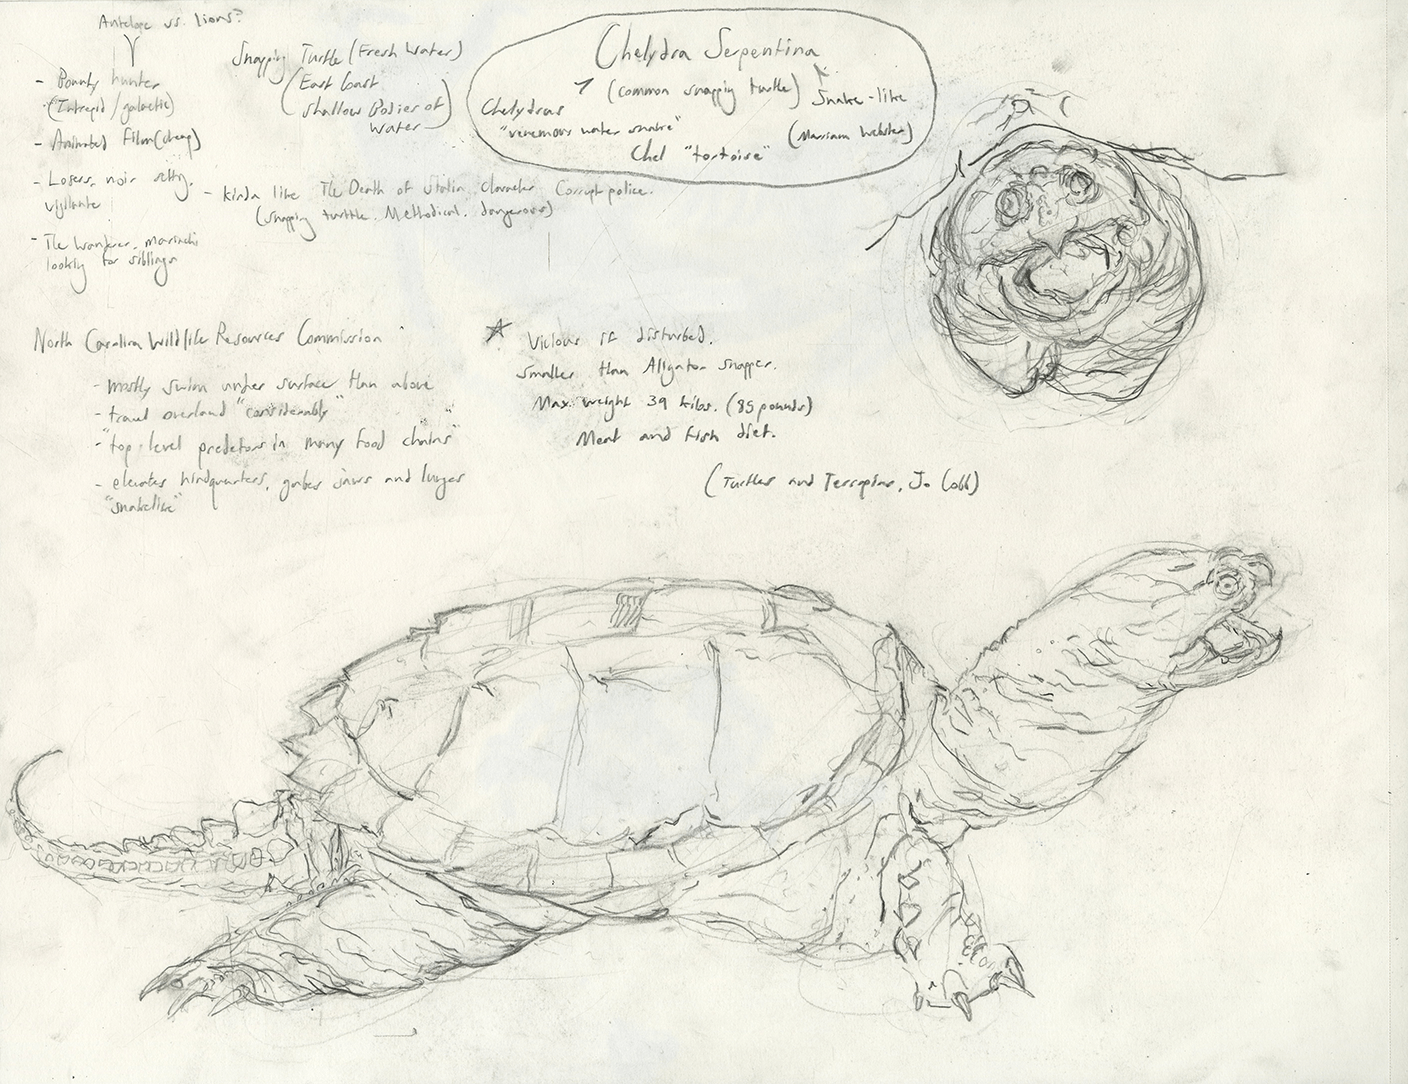 Antelope vs. lions?
- Bounty hunter
(Intrepid / galactic)
- Animated Film (cheap)
- Losers, noir setting.
vigilante
- The Wanderer. mariachi
looking for siblings
Snapping Turtle (Fresh Water)
(East Coast
shallow Bodies of
Water)
Chelydra Serpentina
(common snapping turtle)
Chelydras
"venemous water snake"
Snake-like
(Marriam Webster)
Chel "tortoise"
- Kinda like The Death of Stalin character Corrupt police.
(snapping turttle. Methodical. dangerous)
North Carolina Wildlife Resources Commission
- mostly swim under surface than above
- travel overland "considerably"
- "top-level predators in many food chains"
- elevates hindquarters, gapes jaws and lunges
"snakelike"
☆ Vicious if disturbed.
Smaller than Aligator snapper.
Max. weight 39 kilos. (85 pounds)
Meat and fish diet.
(Turtles and Terrapins, Jo Cobb)